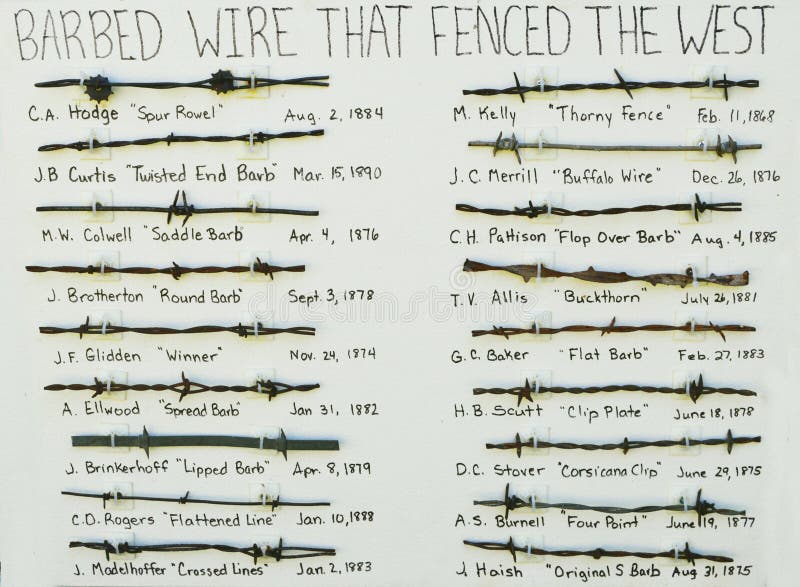 BARBED WIRE THAT FENCED THE WEST
C.A. Hodge "Spur Rowel" Aug. 2, 1884
J.B Curtis "Twisted End Barb" Mar. 15, 1890
M.W. Colwell "Saddle Barb Apr. 4, 1876
J. Brotherton "Round Barb" Sept. 3, 1878
J.F. Glidden "Winner" Nov. 24, 1874
A. Ellwood "Spread Barb" Jan 31, 1882
J. Brinkerhoff "Lipped Barb" Apr. 8, 1879
C.D. Rogers "Flattened Line" Jan. 10, 1888
J. Madelhoffer "Crossed Lines" Jan. 2, 1883
M. Kelly "Thorny Fence" Feb. 11, 1868
J.C. Merrill "Buffalo Wire" Dec. 26, 1876
C.H. Pattison "Flop Over Barb" Aug. 4, 1885
T.V. Allis "Buckthorn" July 26, 1881
G.C. Baker "Flat Barb" Feb. 27, 1883
H.B. Scutt "Clip Plate" June 18, 1878
D.C. Stover "Corsicana Clip" June 29, 1875
A.S. Burnell "Four Point" June 19, 1877
J. Haish "Original S Barb Aug 31, 1875
dreamstime